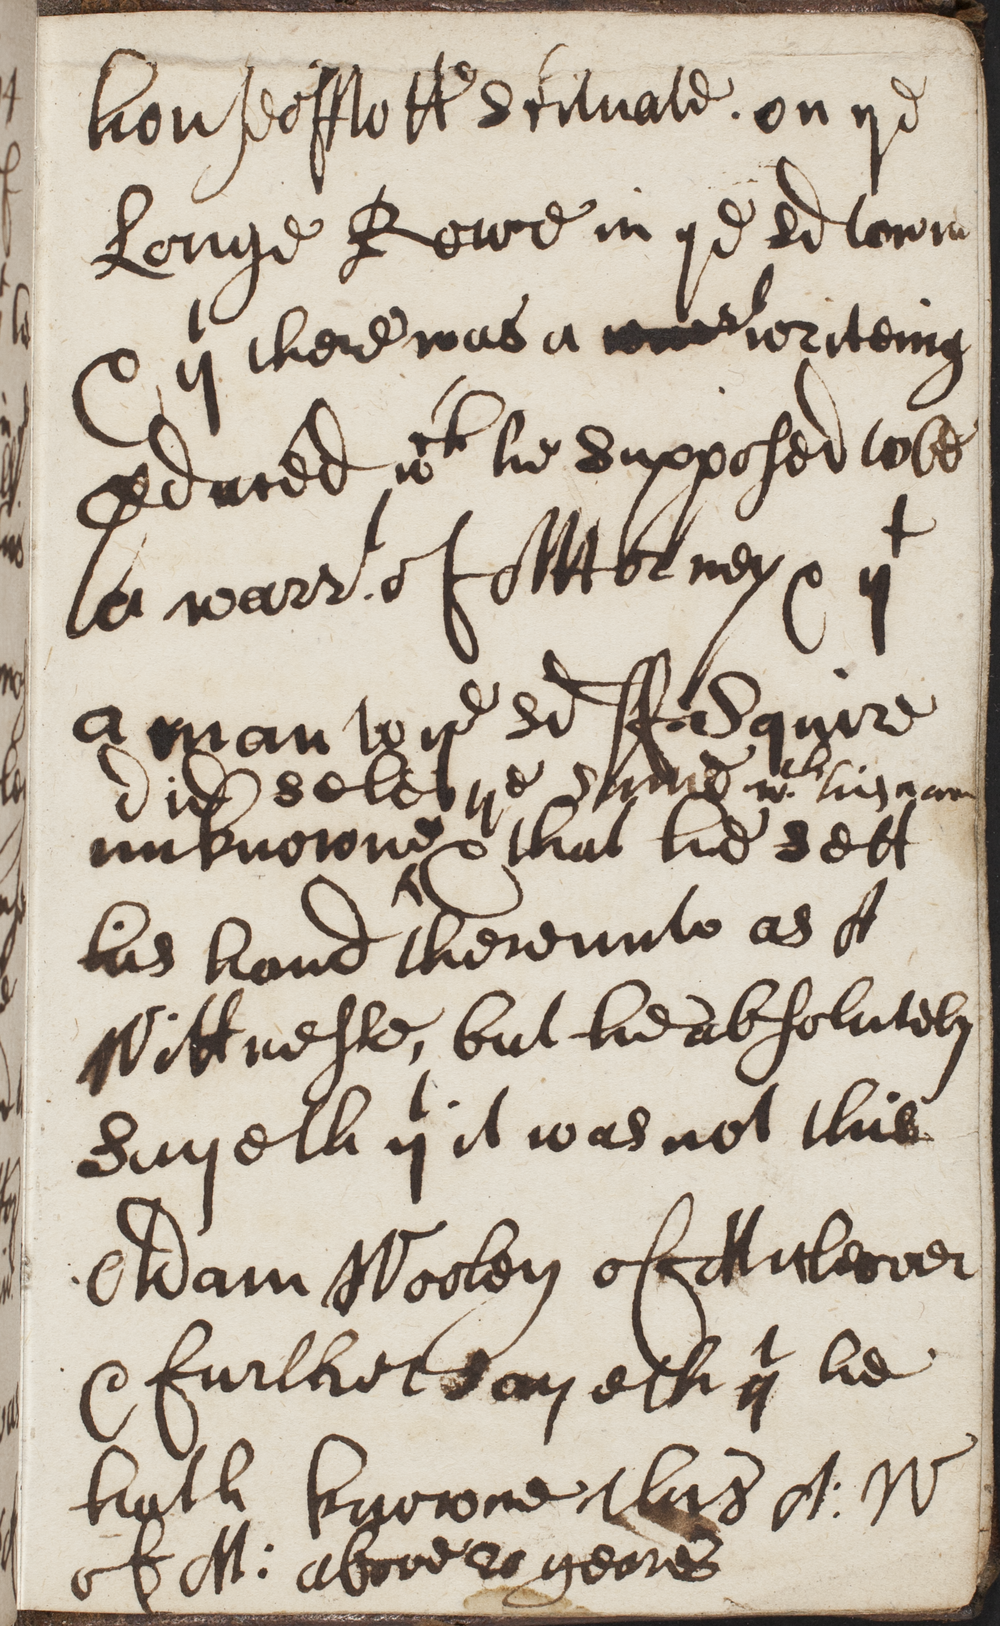 housse offlotte scituate. on ye
Longe Rowe in ye sd town
& yt there was a writeing
pduced wch he supposed to be
a warrt. of Attorney & yt
a man to ye sd Squire
did sele ye same wth his
unknowne & that he sett
his hand thereunto as A
Wittnesse, but he absolutely
sayeth yt it was not this
Adam Wooley of Micleover
& further sayeth yt he
hath knowne this A: W
of M: above 20 yeares